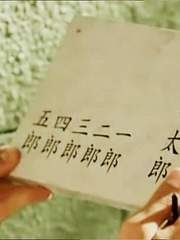 太郎
一郎
二郎
三郎
四郎
五郎